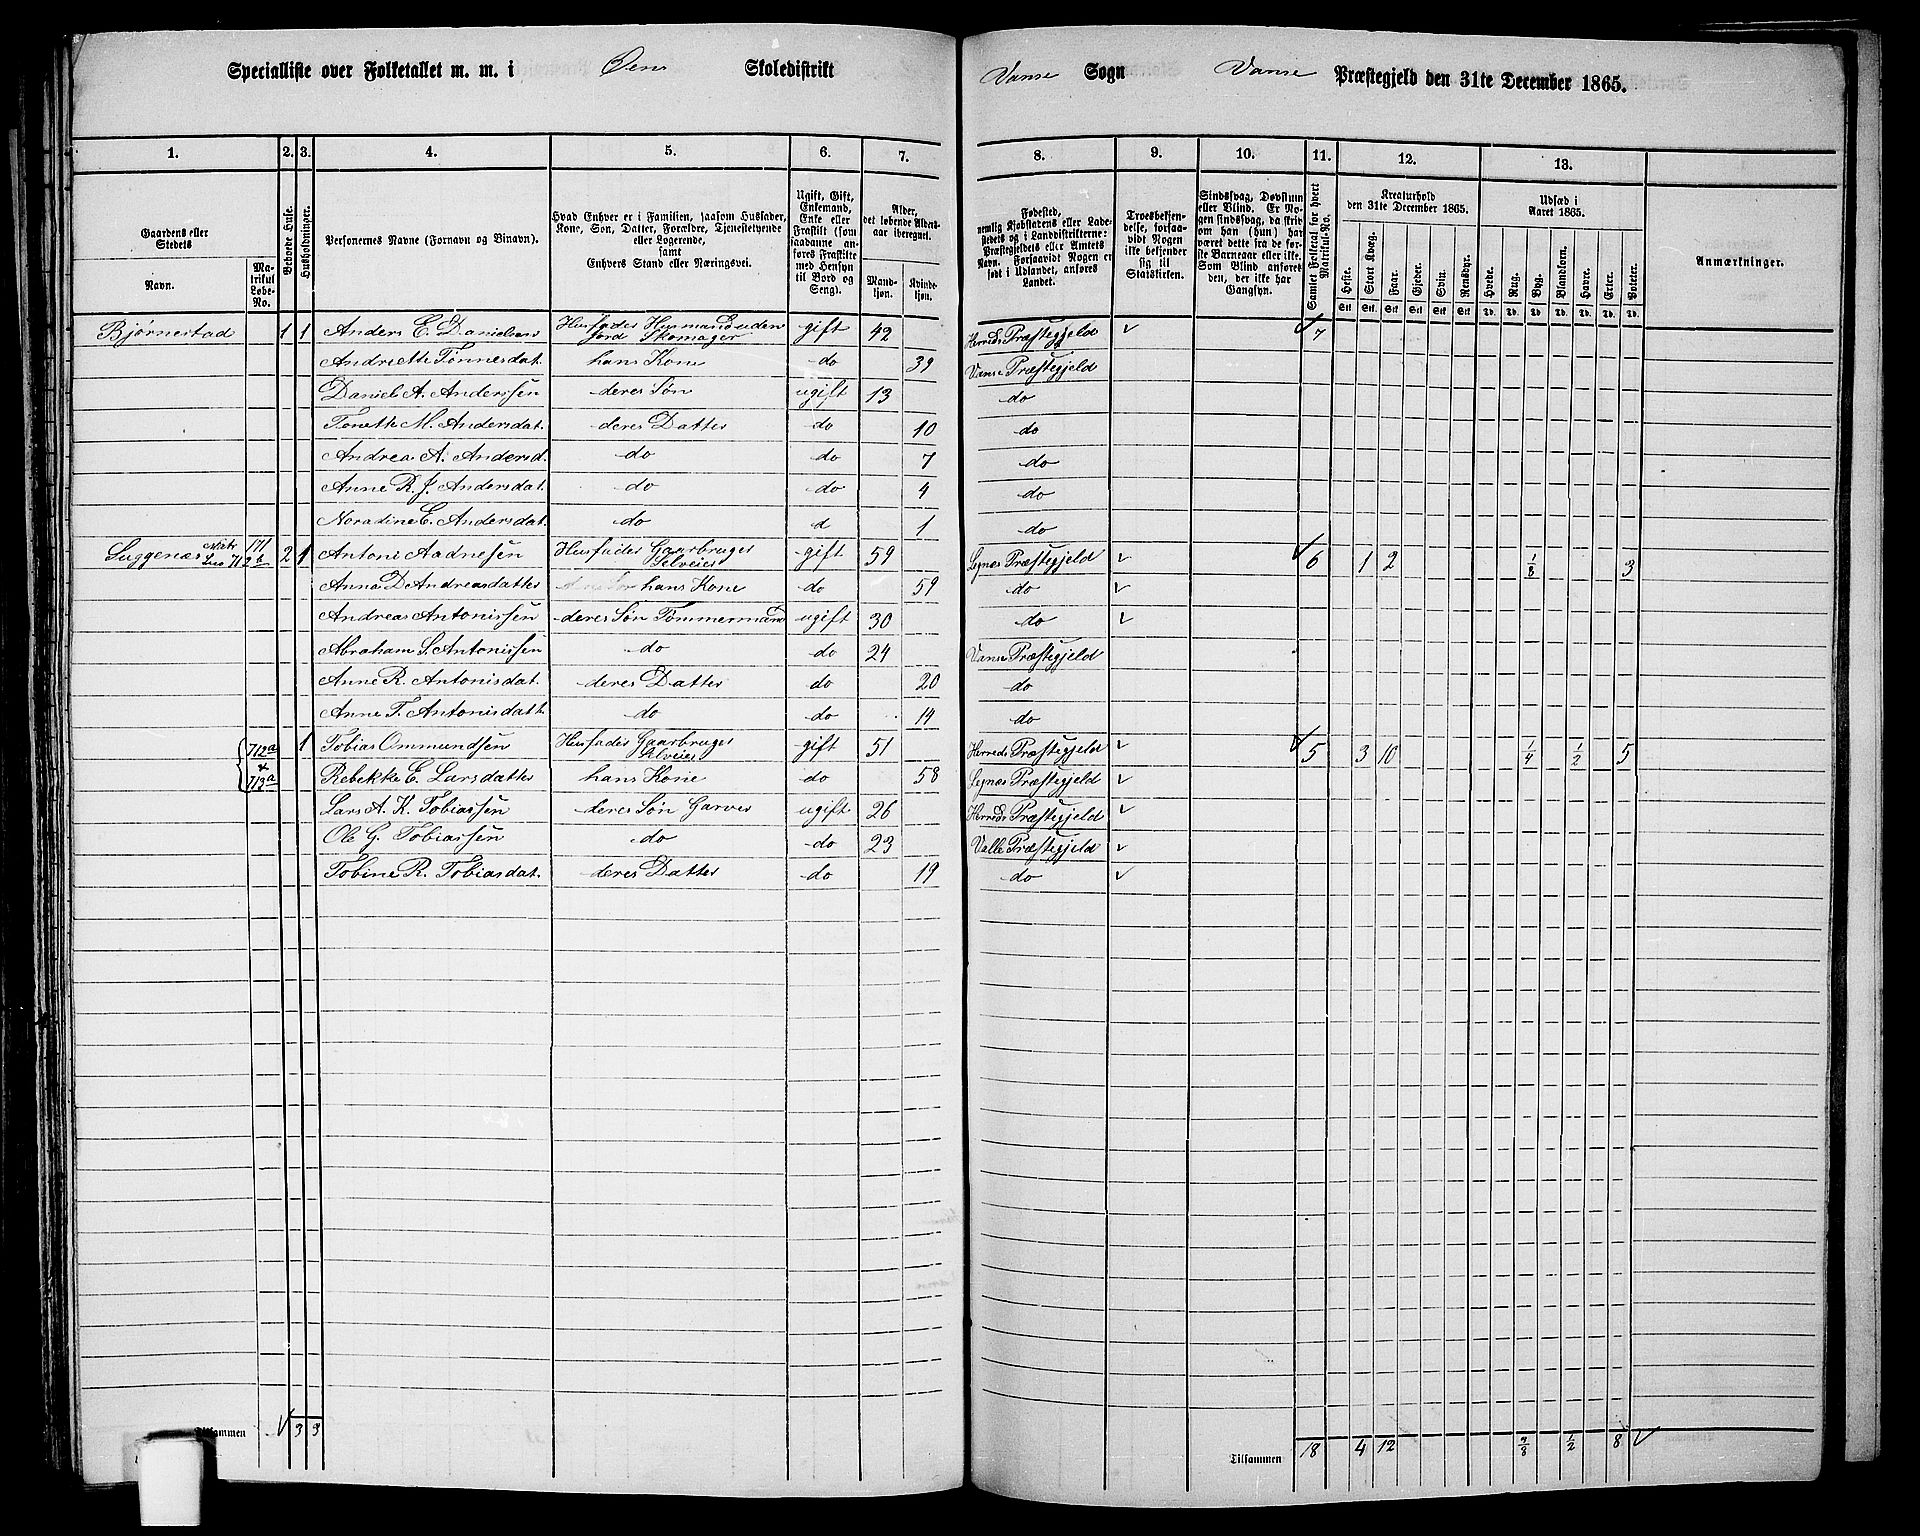 Specialliste over Folketallet m. m. i Øen Skoledistrikt Vanse Sogn Vanse Præstegjeld den 31te December 1865.
1. 2. 3. 4. 5. 6. 7. 8. 9. 10. 11. 12. 13.
Gaardens eller Stedets
Navn.
Matrikul Løbe-No.
Beboede Huse.
Husholdninger.
Personernes Navne (Fornavn og Binavn).
Hvad Enhver er i Familien, saasom Husfader, Kone, Søn, Datter, Forældre, Tjenestetyende eller Logerende, samt Enhvers Stand eller Næringsvei.
Ugift, Gift, Enkemand, Enke eller Fraskilt (som saadanne anføres Fraskilte med Hensyn til Bord og Seng).
Alder, det løbende Aldersaar iberegnet.
Mandkjøn.
Kvindekjøn.
Fødested, nemlig Kjøbstadens eller Ladestedets og i Landdistrikterne: Præstegjeldets eller Amtets Navn. Forsaavidt Nogen er født i Udlandet, anføres Landet.
Troesbekjendelse, forsaavidt Nogen ikke bekjender sig til Statskirken.
Sindssvag, Døvstum eller Blind. Er Nogen sindssvag, da hvorvidt om han (hun) har været dette fra de første Barneaar eller ikke. Som Blind anføres den, der ikke har Gangsyn.
Samlet Folketal for hvert Matrikul-No.
Kreaturhold den 31te December 1865.
Heste. Stort Kvæg. Faar. Gjeder. Svin. Rensdyr.
Stk Stk Stk Stk Stk Stk
Udsæd i Aaret 1865.
Hvede. Rug. Byg. Blandkorn. Havre. Erter. Poteter.
Td. Td. Td. Td. Td. Td. Td.
Anmærkninger.
Bjørnestad 1 1 Anders E. Danielsen Husfader Husmand uden Jord Skomager gift 42 Herreds Præstegjeld ✓ ✓ 7
Andriette Tønnesdat. hans Kone do 39 Vanse Præstegjeld
Daniel A. Anderssen deres Søn ugift 13 do
Tonette M. Andersdat. deres Datter do 10 do
Andrea A. Andersd. do do 7 do
Anne R. J. Andersdat. do do 4 do
Noradine E. Andersdat. do d 1 do
Suggenæs 171 712 b 2 1 Antoni Aadnesen Husfader Gaarbruger Selveier gift 59 Lynæs Præstegjeld ✓ ✓ 6 1 2 1/8 3
Anna D. Andreasdatter hans Kone do 59 do ✓
Andreas Antonissen deres Søn Tømmermand ugift 30 do ✓
Abraham S. Antonissen do do 24 Vanse Præstegjeld
Anne R. Antonisdat. deres Datter do 20 do
Anne T. Antonisdatt. do do 14 do
712a & 713a 1 Tobias Ommundsen Husfader Gaarbruger Selveier gift 51 Herreds Præstegjeld ✓ ✓ 5 3 10 1/4 1/2 5
Rebekke E. Larsdatter hans Kone do 58 Lynæs Præstegjeld ✓
Lars A. K. Tobiassen deres Søn Garver ugift 26 Herreds Præstegjeld ✓
Ole G. Tobiassen do do 23 Valle Præstegjeld ✓
Tobine R. Tobiasdat. deres Datter do 19 do ✓
Tilsammen ✓ 3 3
Tilsammen 18 4 12 3/8 1/2 8 ✓